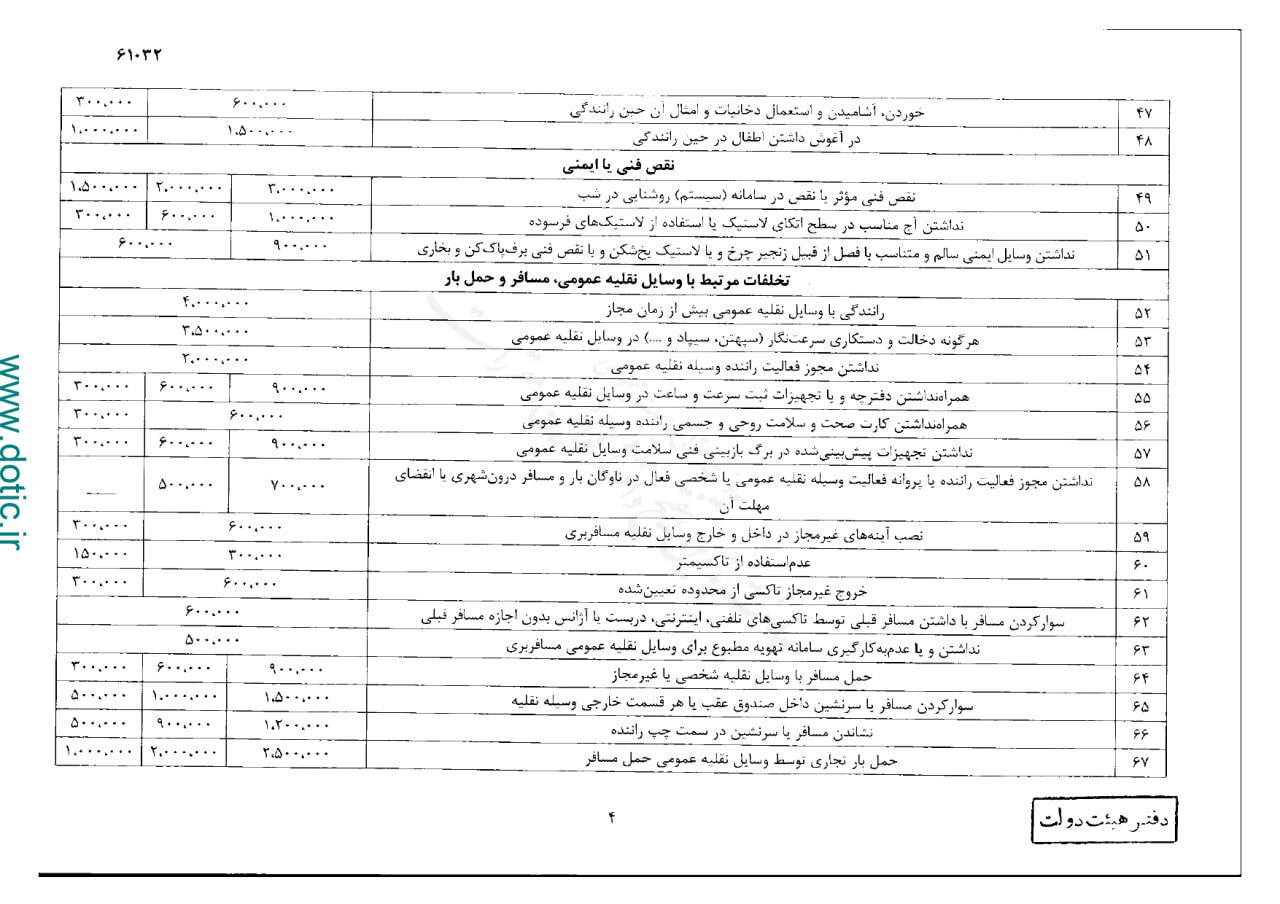 ۶۱۰۳۲
۴۷ خوردن، آشامیدن و استعمال دخانیات و امثال آن حین رانندگی ۶۰۰،۰۰۰ ۳۰۰،۰۰۰
۴۸ در آغوش داشتن اطفال در حین رانندگی ۱،۵۰۰،۰۰۰ ۱،۰۰۰،۰۰۰
نقص فنی یا ایمنی
۴۹ نقص فنی مؤثر یا نقص در سامانه (سیستم) روشنایی در شب ۳،۰۰۰،۰۰۰ ۲،۰۰۰،۰۰۰ ۱،۵۰۰،۰۰۰
۵۰ نداشتن آج مناسب در سطح اتکای لاستیک یا استفاده از لاستیک‌های فرسوده ۱،۰۰۰،۰۰۰ ۶۰۰،۰۰۰ ۳۰۰،۰۰۰
۵۱ نداشتن وسایل ایمنی سالم و متناسب با فصل از قبیل زنجیر چرخ و یا لاستیک یخ‌شکن و یا نقص فنی برف‌پاک‌کن و بخاری ۹۰۰،۰۰۰ ۶۰۰،۰۰۰
تخلفات مرتبط با وسایل نقلیه عمومی، مسافر و حمل بار
۵۲ رانندگی با وسایل نقلیه عمومی بیش از زمان مجاز ۴،۰۰۰،۰۰۰
۵۳ هرگونه دخالت و دستکاری سرعت‌نگار (سپهتن، سیپاد و ....) در وسایل نقلیه عمومی ۳،۵۰۰،۰۰۰
۵۴ نداشتن مجوز فعالیت راننده وسیله نقلیه عمومی ۲،۰۰۰،۰۰۰
۵۵ همراه‌نداشتن دفترچه و یا تجهیزات ثبت سرعت و ساعت در وسایل نقلیه عمومی ۹۰۰،۰۰۰ ۶۰۰،۰۰۰ ۳۰۰،۰۰۰
۵۶ همراه‌نداشتن کارت صحت و سلامت روحی و جسمی راننده وسیله نقلیه عمومی ۶۰۰،۰۰۰ ۳۰۰،۰۰۰
۵۷ نداشتن تجهیزات پیش‌بینی‌شده در برگ بازبینی فنی سلامت وسایل نقلیه عمومی ۹۰۰،۰۰۰ ۶۰۰،۰۰۰ ۳۰۰،۰۰۰
۵۸ نداشتن مجوز فعالیت راننده یا پروانه فعالیت وسیله نقلیه عمومی یا شخصی فعال در ناوگان بار و مسافر درون‌شهری یا انقضای ۷۰۰،۰۰۰ ۵۰۰،۰۰۰ ——
مهلت آن
۵۹ نصب آینه‌های غیرمجاز در داخل و خارج وسایل نقلیه مسافربری ۶۰۰،۰۰۰ ۳۰۰،۰۰۰
۶۰ عدم‌استفاده از تاکسیمتر ۳۰۰،۰۰۰ ۱۵۰،۰۰۰
۶۱ خروج غیرمجاز تاکسی از محدوده تعیین‌شده ۶۰۰،۰۰۰ ۳۰۰،۰۰۰
۶۲ سوارکردن مسافر با داشتن مسافر قبلی توسط تاکسی‌های تلفنی، اینترنتی، دربست یا آژانس بدون اجازه مسافر قبلی ۶۰۰،۰۰۰
۶۳ نداشتن و یا عدم‌به‌کارگیری سامانه تهویه مطبوع برای وسایل نقلیه عمومی مسافربری ۵۰۰،۰۰۰
۶۴ حمل مسافر با وسایل نقلیه شخصی یا غیرمجاز ۹۰۰،۰۰۰ ۶۰۰،۰۰۰ ۳۰۰،۰۰۰
۶۵ سوارکردن مسافر یا سرنشین داخل صندوق عقب یا هر قسمت خارجی وسیله نقلیه ۱،۵۰۰،۰۰۰ ۱،۰۰۰،۰۰۰ ۵۰۰،۰۰۰
۶۶ نشاندن مسافر یا سرنشین در سمت چپ راننده ۱،۲۰۰،۰۰۰ ۹۰۰،۰۰۰ ۵۰۰،۰۰۰
۶۷ حمل بار تجاری توسط وسایل نقلیه عمومی حمل مسافر ۲،۵۰۰،۰۰۰ ۲،۰۰۰،۰۰۰ ۱،۰۰۰،۰۰۰
۴
دفتر هیئت دولت
www.dotic.ir